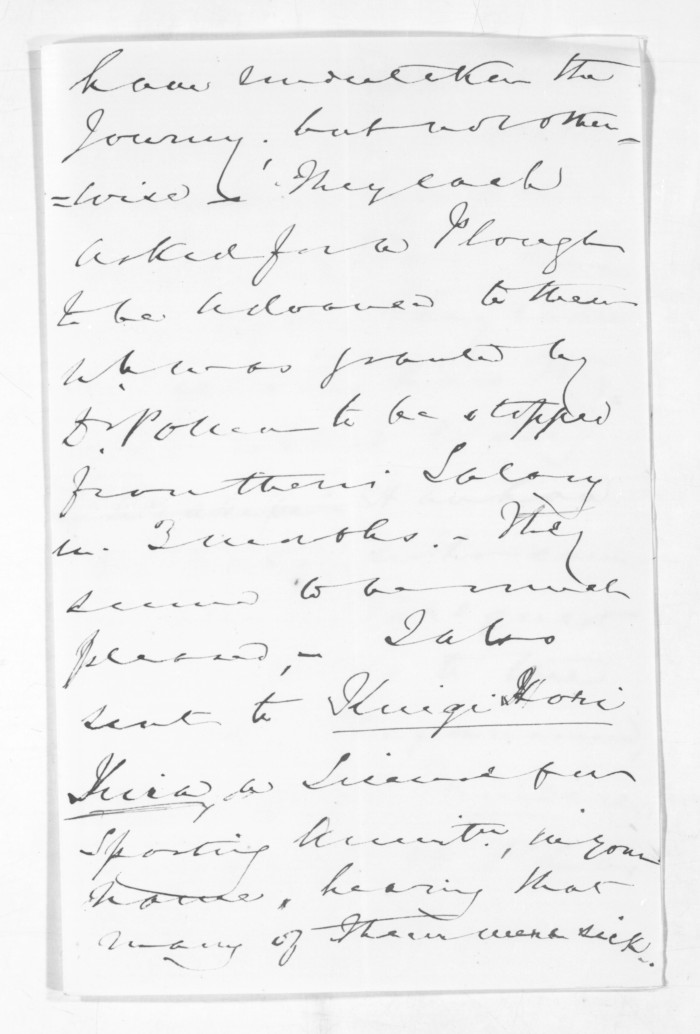 have undertaken the
Journey; but not other=
=wise – They each
asked for a Plough
to be advanced to them
wh. was granted by
Dr. Pollen to be stopped
from their Salary
in 3 months. – They
seemed to be much
pleased, – I also
sent to Kuigi Hori
Kira, a License for
Sporting Ammitn., in your
name, hearing that
many of them were sick.